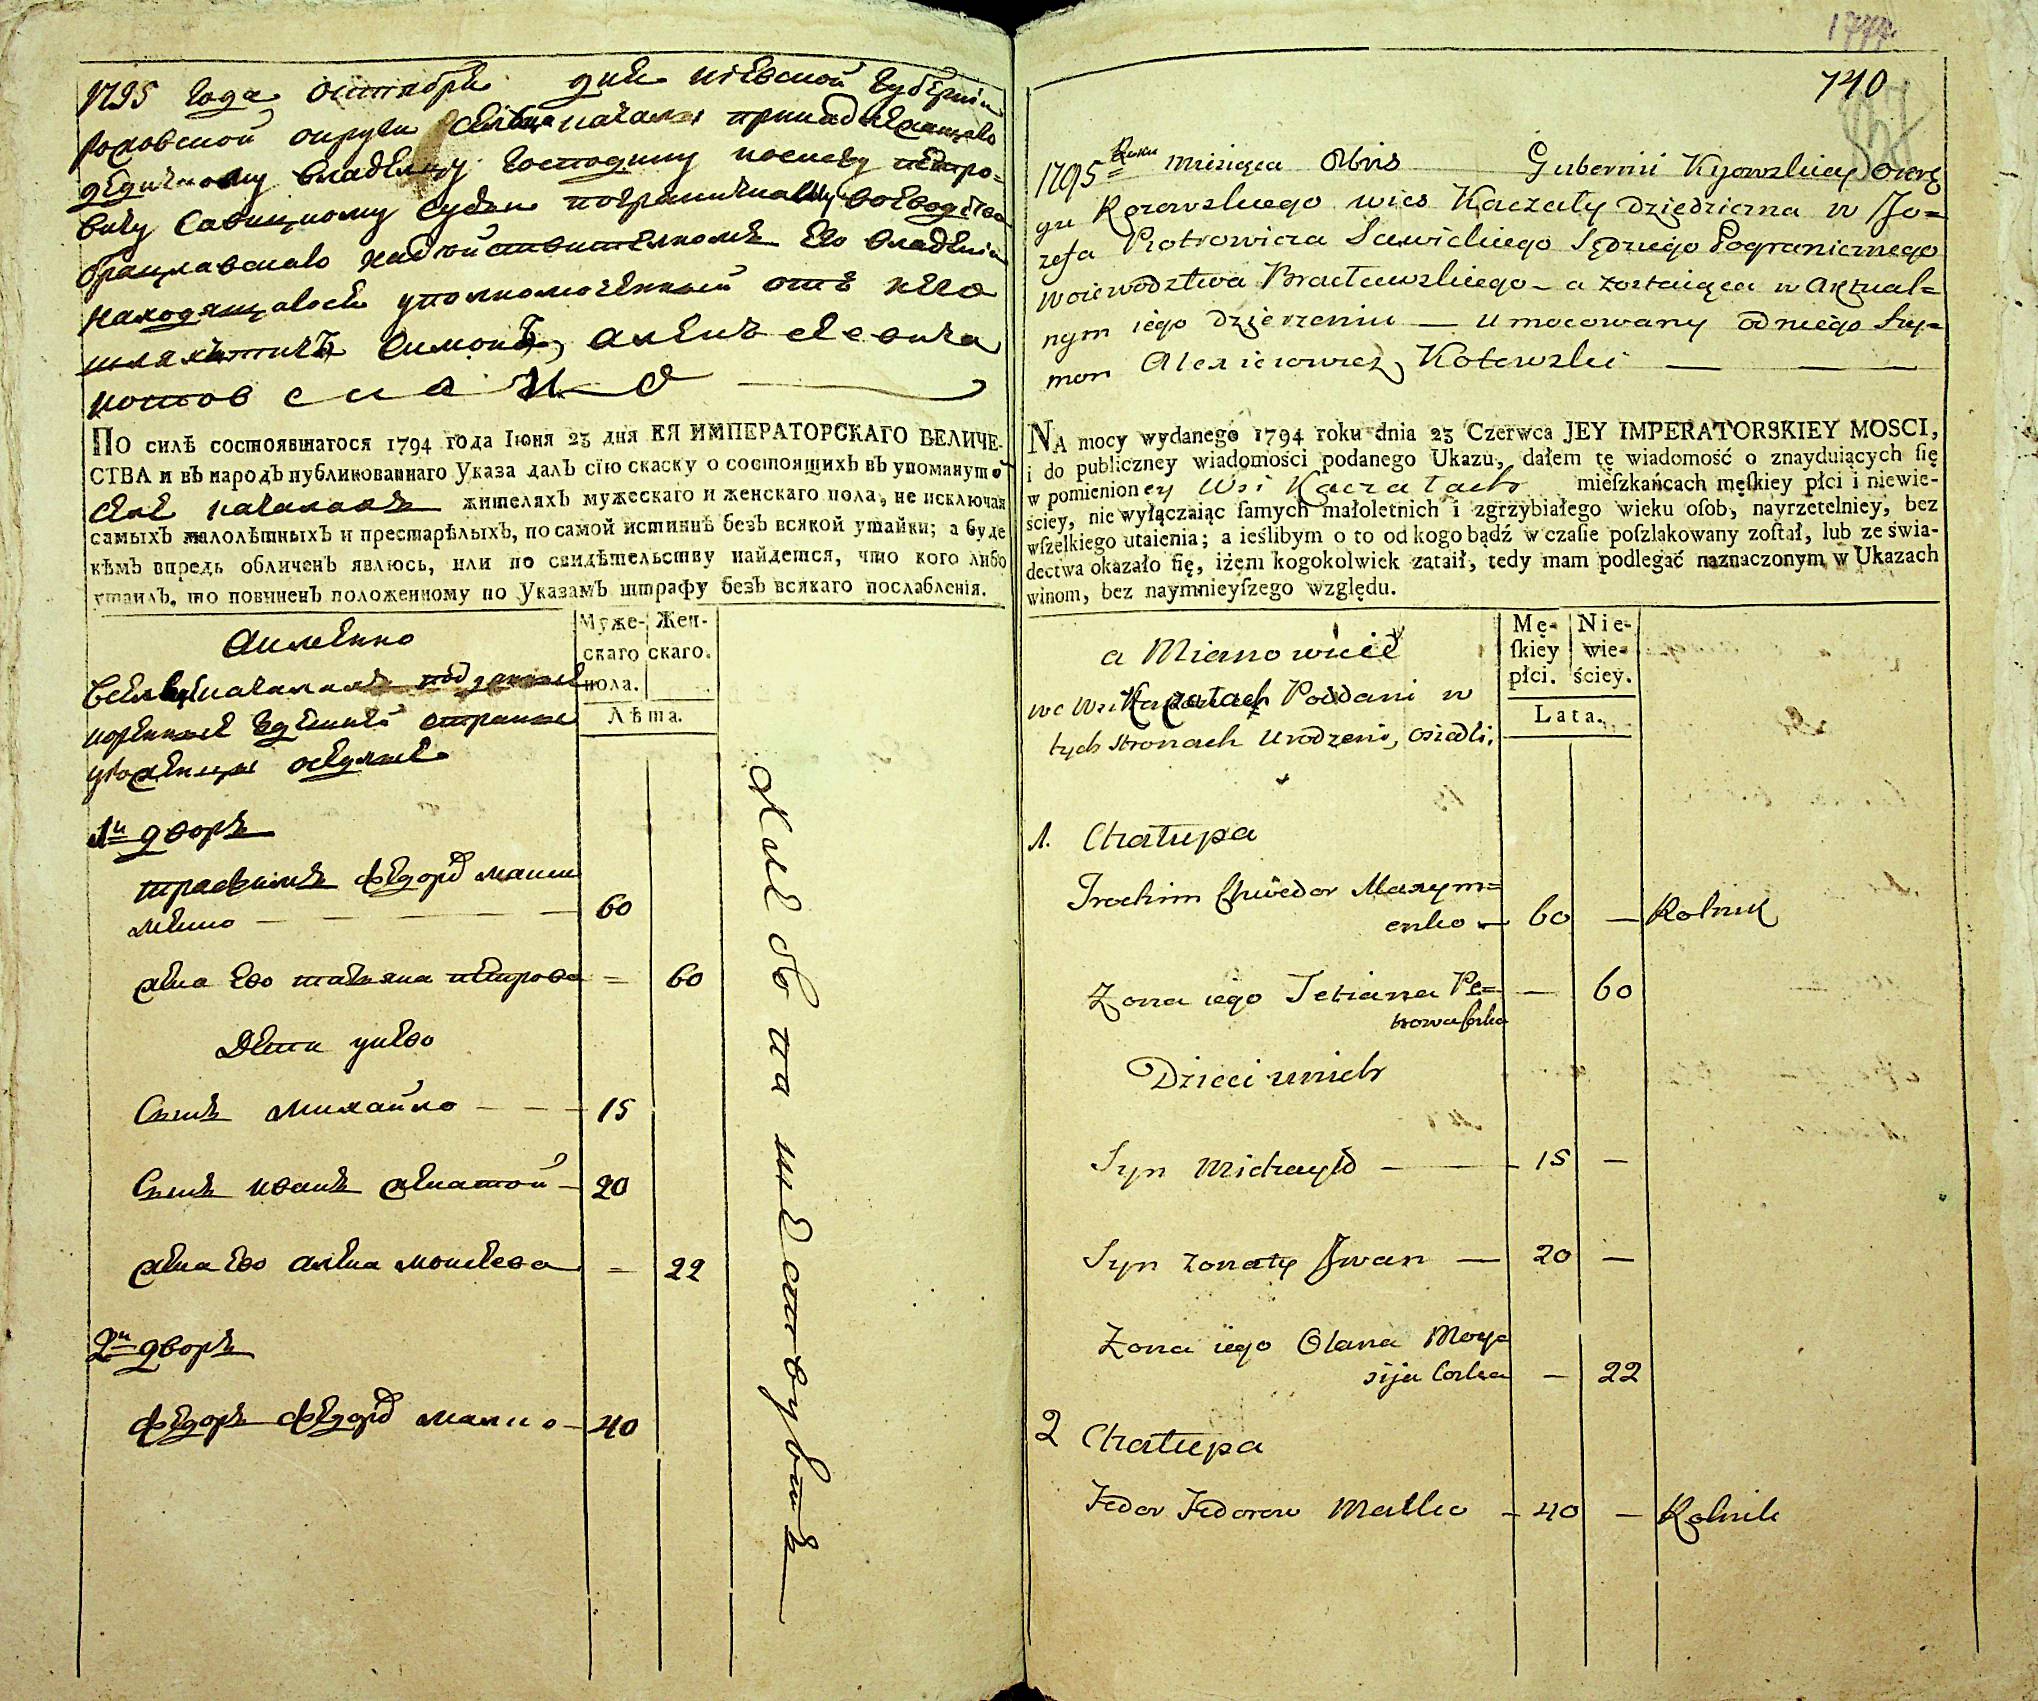 1795 года октября дня киевской губернiи
роховской округи селца качала принадлежащаго
дедичному владелцу господину иосиеву петро-
вичу савицкому судьи пограничному воеводства
брацлавскаго надействителномъ его владенiи
находящагося уполномоченный отъ него
шляхтичъ Симонъ алексеевича
котовскаго
По силѣ состоявшагося 1794 года Iюня 23 дня ЕЯ ИМПЕРАТОРСКАГО ВЕЛИЧЕ-
СТВА и въ народъ публикованнаго Указа далъ сїю скаску о состоящихъ въ упомянуто
селе качалахъ жителяхъ мужескаго и женскаго пола, не исключая
самыхъ малолѣтныхъ и престарѣлыхъ, по самой истиннѣ безъ всякой утайки; а буде
кѣмъ впредь обличенъ явлюсь, или по свидѣтельству найдется, что кого либо
утаилъ, то повиненъ положенному по Указамъ штрафу безъ всякаго послабленїя.
Аименно
Муже-
скаго
пола.
Жен-
скаго.
Лѣта.
Вселце качалахъ подданые
коренные здешней страны
уроженцы оседлые
1й дворъ
трафимъ федоров макси
менко — 60
жена ево татьяна петрова = 60
Дети унево
Сынъ михайло — 15
Сынъ иванъ женатой — 20
жена ево алена моисеева = 22
2й дворъ
федоръ федоров малко — 40
Хлебопашествуетъ
740
1795 Roku miesiąca 8bris Gubernii Kyiowskiey okrę
gu Rozowskiego wies Kaczały dziedziczna w Jo=
zefa Piotrowicza Sawickiego Sędziego Pogranicznego
Woiewodztwa Bracławskiego — a zostaiąca w aktual=
nym iego dzierzeniu — umocowany od niego Szy=
mon Alexiiewicz Kotowski — — —
NA mocy wydanego 1794 roku dnia 23 Czerwca JEY IMPERATORSKIEY MOSCI,
i do publiczney wiadomości podanego Ukazu, dałem tę wiadomość o znayduiących ſię
w pomienioney Wsi Kaczałach mieſzkańcach męſkiey płci i niewie-
ściey, nie wyłączaiąc ſamych małoletnich i zgrzybiałego wieku oſob, nayrzetelniey, bez
wſzelkiego utaienia; a ieślibym o to od kogo bądź w czaſie poſzlakowany zoſtał, lub ze świa-
dectwa okazało ſię, iżem kogokolwiek zataił, tedy mam podlegać naznaczonym w Ukazach
winom, bez naymnieyſzego względu.
a Mianowicie
Mę-
ſkiey
płci.
Nie-
wie-
ściey.
Lata.
we Wsi Kaczałach Poddani w
tych stronach urodzeni, osiedli.
1. Chałupa
Trochim Chwedor Maxym=
enko — 60 — Rolnik
Zona iego Tetiana Pe=
trowa Corka — 60
Dzieci u nich
Syn Michayło — 15 —
Syn żonaty Jwan — 20 —
Zona iego Olana Moyse
sija Corka — 22
2 Chałupa
Fedor Fedorow Malko — 40 — Rolnik